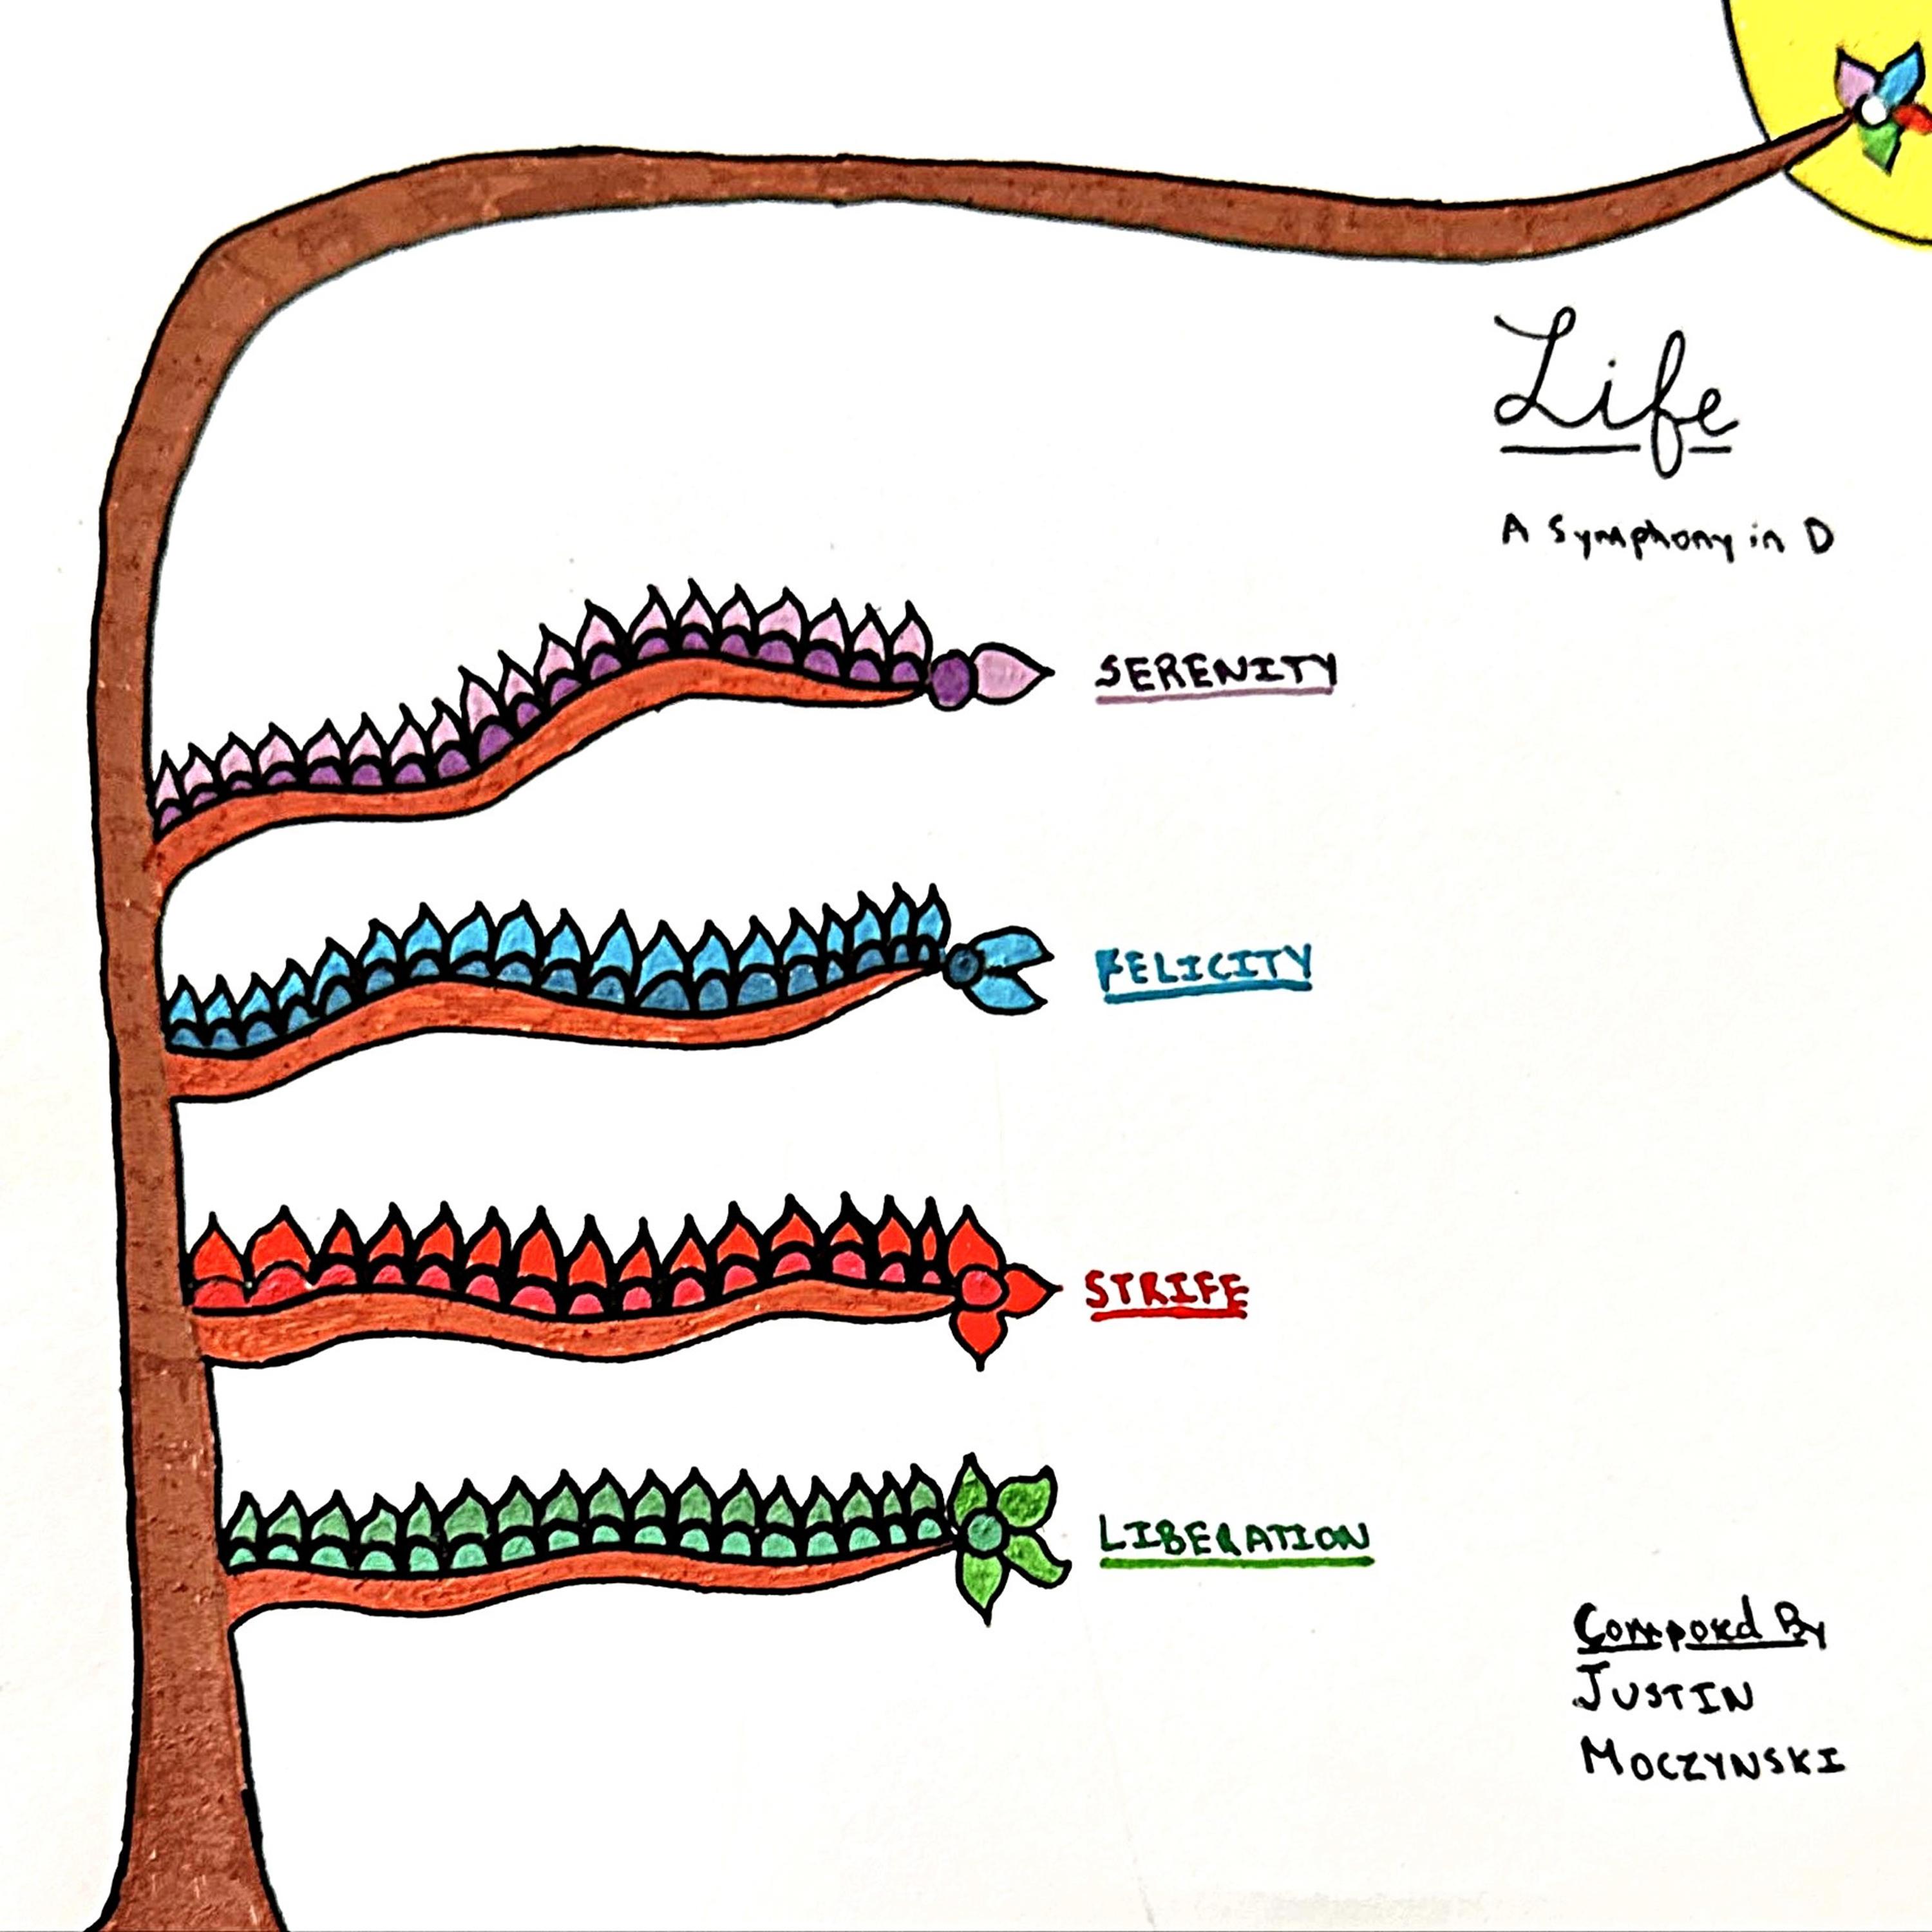 Life
A Symphony in D
SERENITY
FELICITY
STRIFE
LIBERATION
Composed By
JUSTIN
MOCZYNSKI